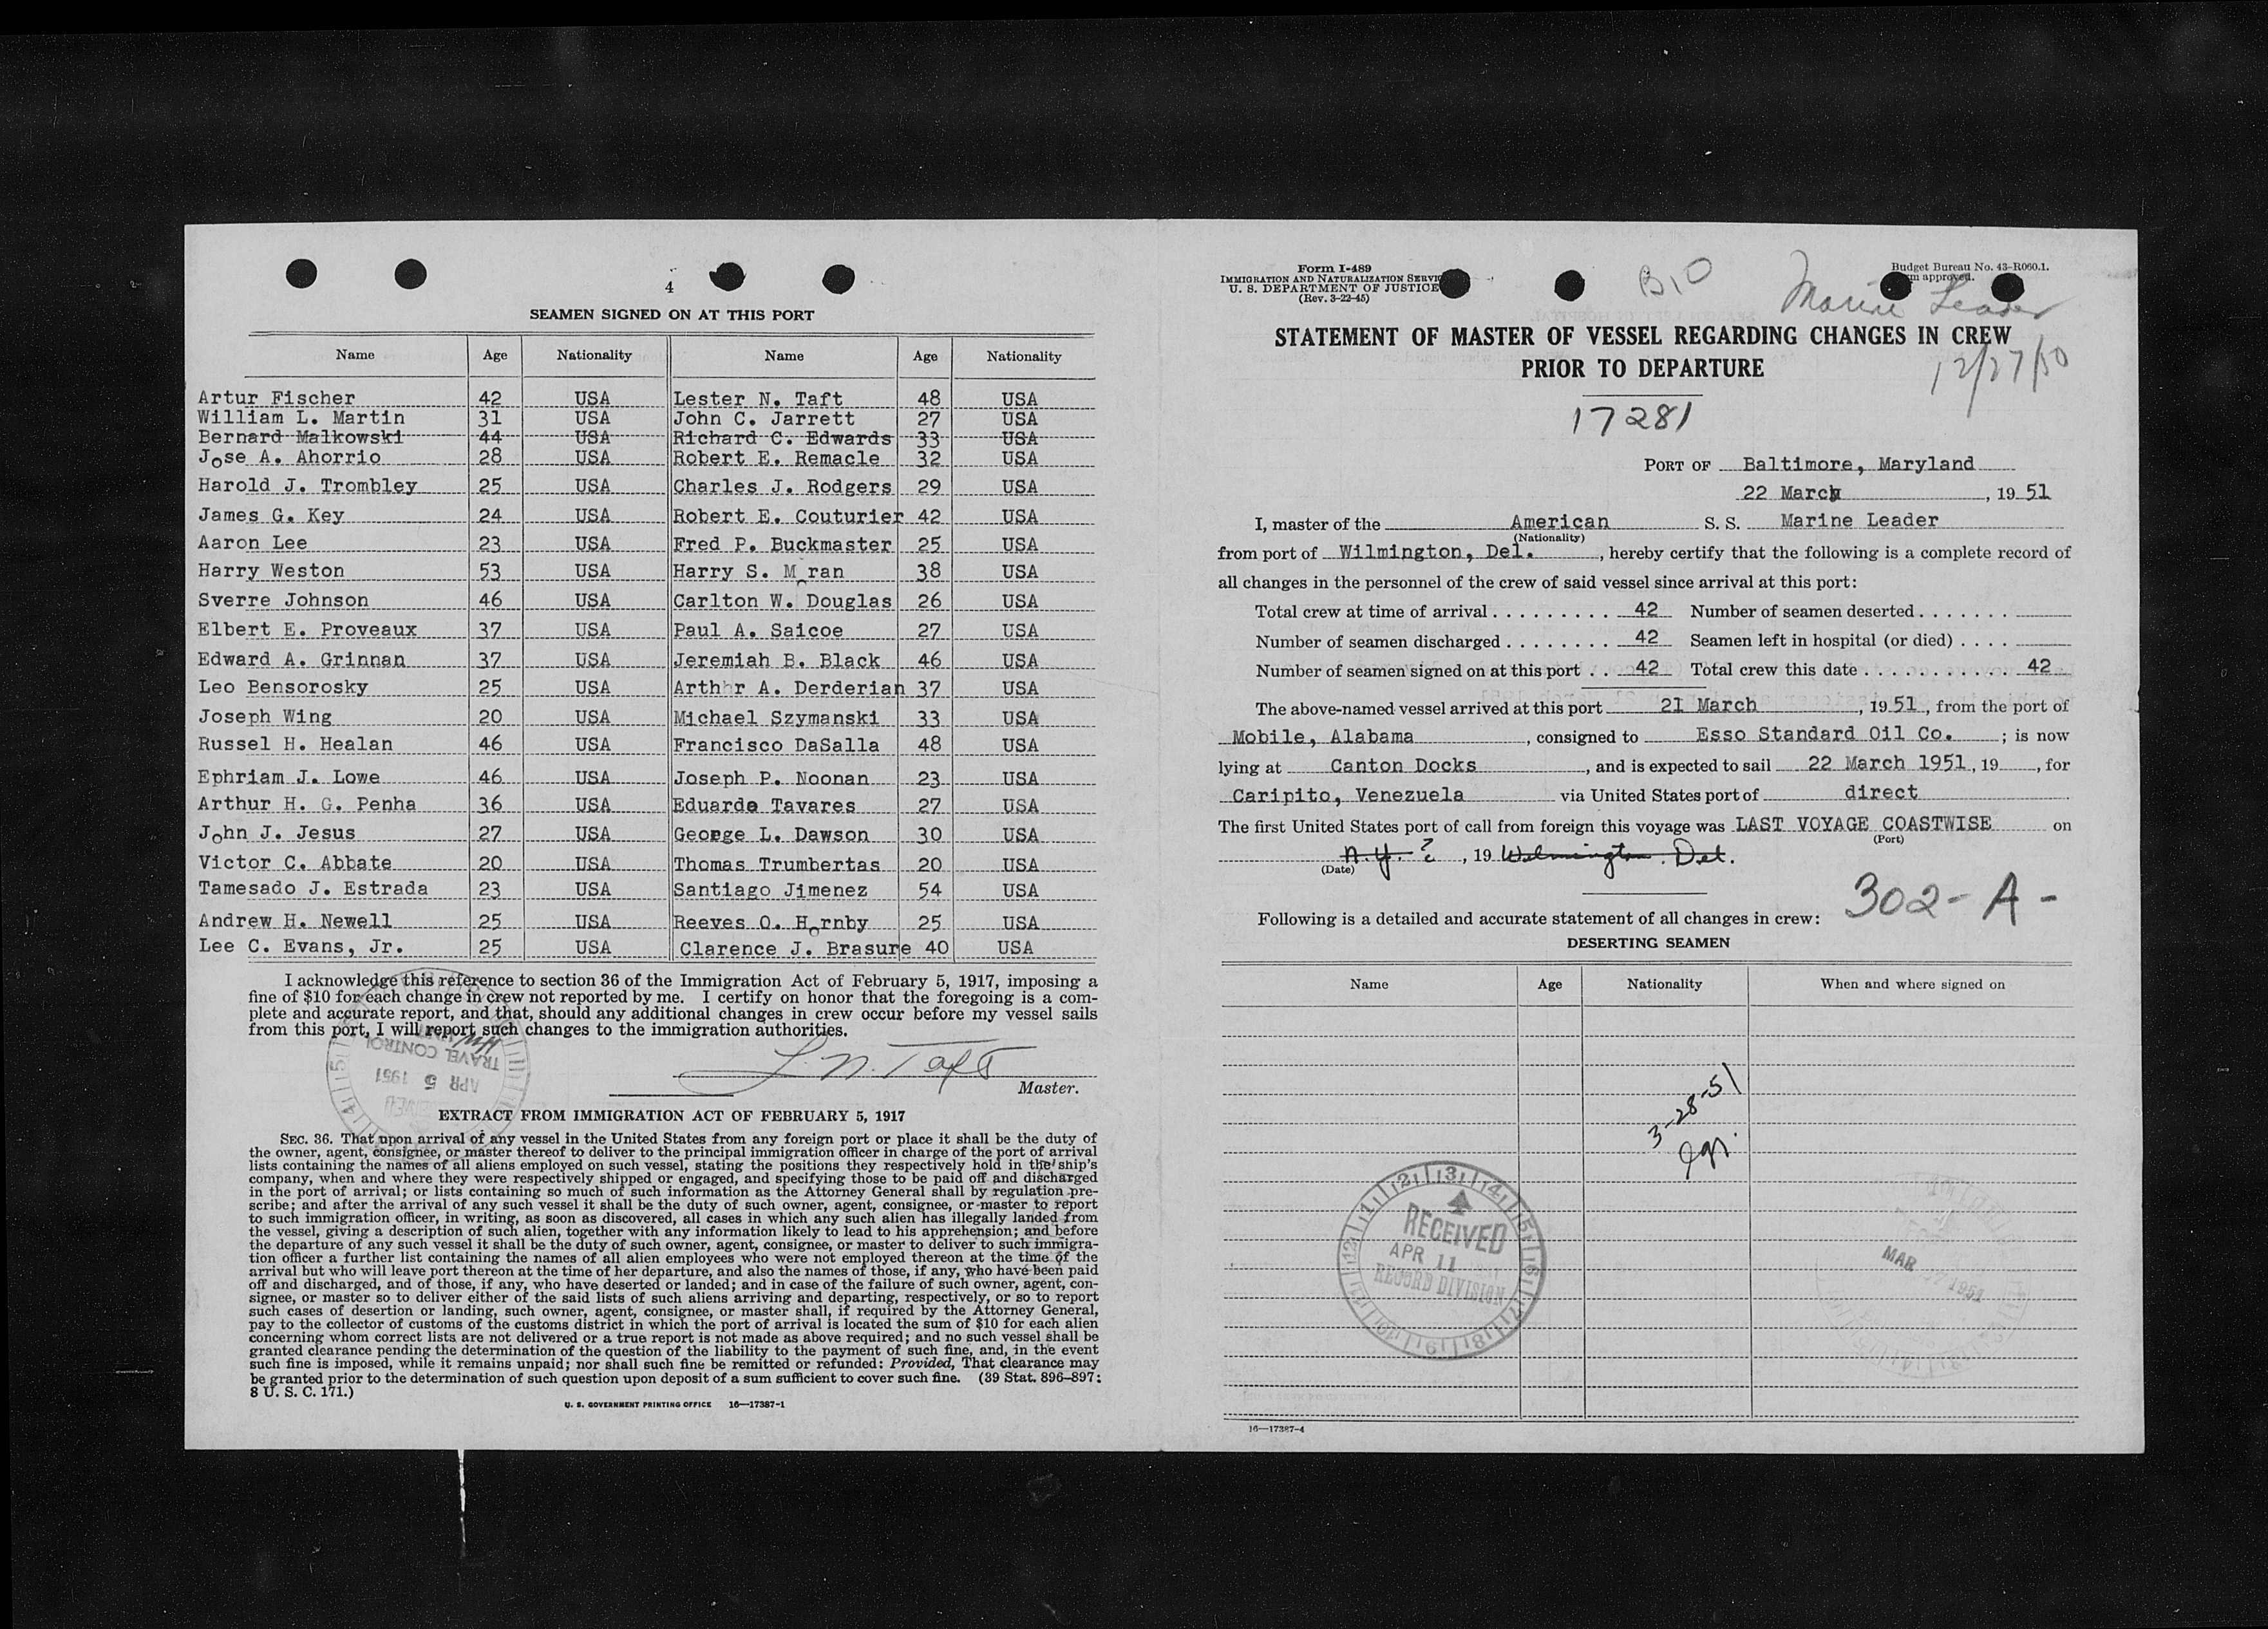 4
SEAMEN SIGNED ON AT THIS PORT
Name Age Nationality Name Age Nationality
Artur Fischer 42 USA Lester N. Taft 48 USA
William L. Martin 31 USA John C. Jarrett 27 USA
Bernard Malkowski 44 USA Richard C. Edwards 33 USA
Jose A. Ahorrio 28 USA Robert E. Remacle 32 USA
Harold J. Trombley 25 USA Charles J. Rodgers 29 USA
James G. Key 24 USA Robert E. Couturier 42 USA
Aaron Lee 23 USA Fred P. Buckmaster 25 USA
Harry Weston 53 USA Harry S. Moran 38 USA
Sverre Johnson 46 USA Carlton W. Douglas 26 USA
Elbert E. Proveaux 37 USA Paul A. Saicoe 27 USA
Edward A. Grinnan 37 USA Jeremiah B. Black 46 USA
Leo Bensorosky 25 USA Arthur A. Derderian 37 USA
Joseph Wing 20 USA Michael Szymanski 33 USA
Russel H. Healan 46 USA Francisco DaSalla 48 USA
Ephriam J. Lowe 46 USA Joseph P. Noonan 23 USA
Arthur H. G. Penha 36 USA Eduardo Tavares 27 USA
John J. Jesus 27 USA George L. Dawson 30 USA
Victor C. Abbate 20 USA Thomas Trumbertas 20 USA
Tamesado J. Estrada 23 USA Santiago Jimenez 54 USA
Andrew H. Newell 25 USA Reeves O. Hornby 25 USA
Lee C. Evans, Jr. 25 USA Clarence J. Brasure 40 USA
I acknowledge this reference to section 36 of the Immigration Act of February 5, 1917, imposing a
fine of $10 for each change in crew not reported by me. I certify on honor that the foregoing is a com-
plete and accurate report, and that, should any additional changes in crew occur before my vessel sails
from this port, I will report such changes to the immigration authorities.
TRAVEL CONTROL
APR 5 1951
L. N. Taft
Master.
EXTRACT FROM IMMIGRATION ACT OF FEBRUARY 5, 1917
SEC. 36. That upon arrival of any vessel in the United States from any foreign port or place it shall be the duty of
the owner, agent, consignee, or master thereof to deliver to the principal immigration officer in charge of the port of arrival
lists containing the names of all aliens employed on such vessel, stating the positions they respectively hold in the ship's
company, when and where they were respectively shipped or engaged, and specifying those to be paid off and discharged
in the port of arrival; or lists containing so much of such information as the Attorney General shall by regulation pre-
scribe; and after the arrival of any such vessel it shall be the duty of such owner, agent, consignee, or master to report
to such immigration officer, in writing, as soon as discovered, all cases in which any such alien has illegally landed from
the vessel, giving a description of such alien, together with any information likely to lead to his apprehension; and before
the departure of any such vessel it shall be the duty of such owner, agent, consignee, or master to deliver to such immigra-
tion officer a further list containing the names of all alien employees who were not employed thereon at the time of the
arrival but who will leave port thereon at the time of her departure, and also the names of those, if any, who have been paid
off and discharged, and of those, if any, who have deserted or landed; and in case of the failure of such owner, agent, con-
signee, or master so to deliver either of the said lists of such aliens arriving and departing, respectively, or so to report
such cases of desertion or landing, such owner, agent, consignee, or master shall, if required by the Attorney General,
pay to the collector of customs of the customs district in which the port of arrival is located the sum of $10 for each alien
concerning whom correct lists are not delivered or a true report is not made as above required; and no such vessel shall be
granted clearance pending the determination of the question of the liability to the payment of such fine, and, in the event
such fine is imposed, while it remains unpaid; nor shall such fine be remitted or refunded: Provided, That clearance may
be granted prior to the determination of such question upon deposit of a sum sufficient to cover such fine. (39 Stat. 896–897;
8 U. S. C. 171.)
U. S. GOVERNMENT PRINTING OFFICE 16—17387-1
Form I-489
IMMIGRATION AND NATURALIZATION SERVICE
U. S. DEPARTMENT OF JUSTICE
(Rev. 3-22-45)
Budget Bureau No. 43-R060.1.
approved.
Marine Leader
12/27/50
STATEMENT OF MASTER OF VESSEL REGARDING CHANGES IN CREW
PRIOR TO DEPARTURE
17281
PORT OF Baltimore, Maryland
22 March, 19 51
I, master of the American S. S. Marine Leader
(Nationality)
from port of Wilmington, Del. , hereby certify that the following is a complete record of
all changes in the personnel of the crew of said vessel since arrival at this port:
Total crew at time of arrival . . . . . . . . . . 42 Number of seamen deserted . . . . . . .
Number of seamen discharged . . . . . . . . 42 Seamen left in hospital (or died) . . . .
Number of seamen signed on at this port . . 42 Total crew this date . . . . . . . . . . . 42
The above-named vessel arrived at this port 21 March , 19 51 , from the port of
Mobile, Alabama , consigned to Esso Standard Oil Co. ; is now
lying at Canton Docks , and is expected to sail 22 March 1951 , 19 , for
Caripito, Venezuela via United States port of direct
The first United States port of call from foreign this voyage was LAST VOYAGE COASTWISE on
(Port)
N.Y. ? , 19 Wilmington. Del.
(Date)
302- A -
Following is a detailed and accurate statement of all changes in crew:
DESERTING SEAMEN
Name Age Nationality When and where signed on
3-28-51
RECEIVED
APR 11
RECORD DIVISION
MAR 1951
16—17387-4